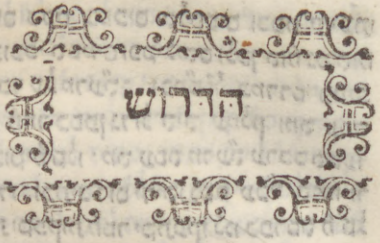 הדרוש